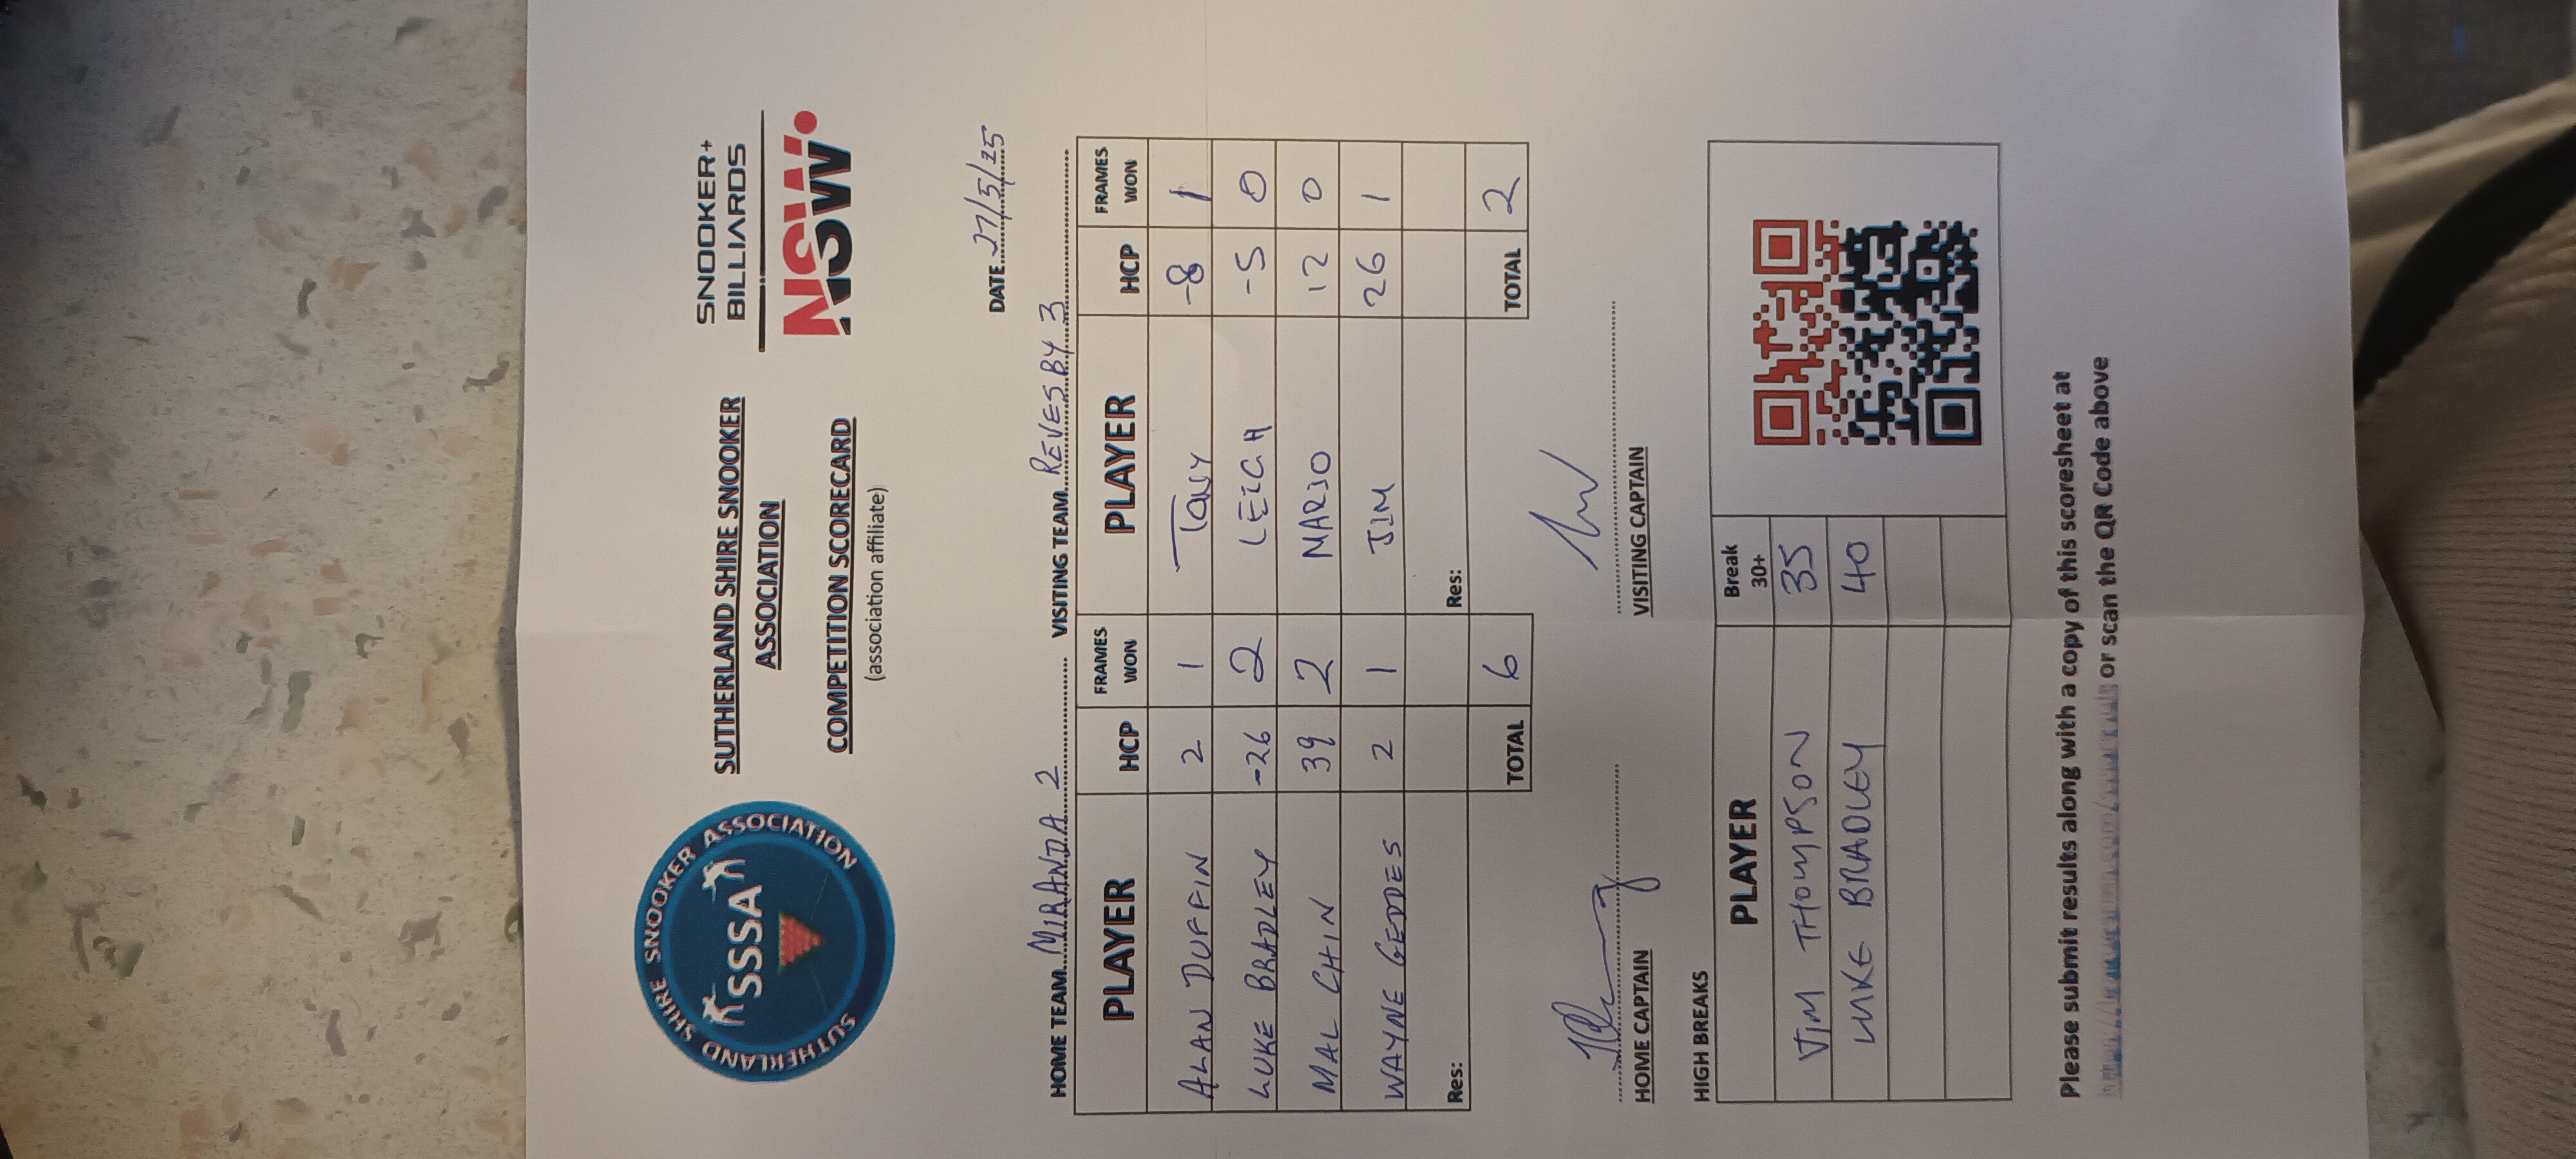 SUTHERLAND SHIRE SNOOKER ASSOCIATION
SSSA
SUTHERLAND SHIRE SNOOKER
ASSOCIATION
COMPETITION SCORECARD
(association affiliate)
SNOOKER+
BILLIARDS
NSW
DATE 27/5/25
HOME TEAM MIRANDA 2 VISITING TEAM REVESBY 3
PLAYER HCP FRAMES WON PLAYER HCP FRAMES WON
ALAN DUFFIN 2 1 TONY -8 1
LUKE BRADLEY -26 2 LEIGH -5 0
MAL CHIN 39 2 MARIO 12 0
WAYNE GEDDES 2 1 JIM 26 1
Res: Res:
TOTAL 6 TOTAL 2
HOME CAPTAIN VISITING CAPTAIN
HIGH BREAKS
PLAYER Break 30+
JIM THOMPSON 35
LUKE BRADLEY 40
Please submit results along with a copy of this scoresheet at
or scan the QR Code above